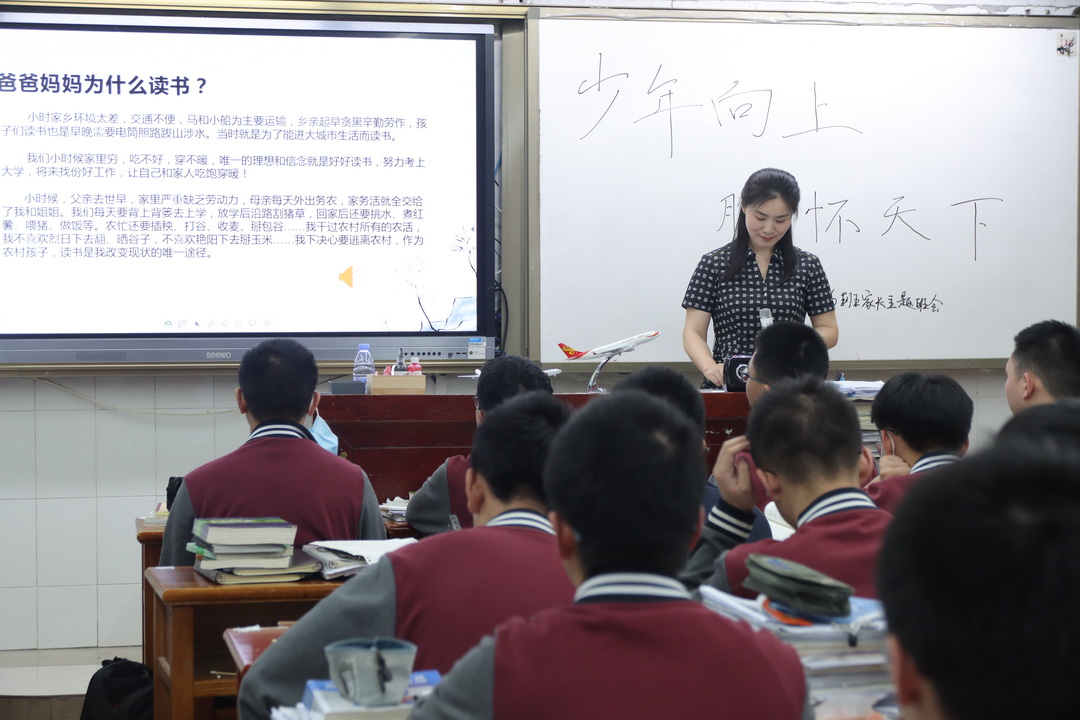 爸爸妈妈为什么读书？
小时家乡环境太差，交通不便，马和小船为主要运输，乡亲起早贪黑辛勤劳作，孩
子们读书也是早晚需要电筒照路跋山涉水。当时就是为了能进大城市生活而读书。
我们小时候家里穷，吃不好，穿不暖，唯一的理想和信念就是好好读书，努力考上
大学，将来找份好工作，让自己和家人吃饱穿暖！
小时候，父亲去世早，家里严重缺乏劳动力，母亲每天外出务农，家务活就全交给
了我和姐姐。我们每天要背上背篓去上学，放学后沿路割猪草，回家后还要挑水、煮红
薯、喂猪、做饭等。农忙还要插秧、打谷、收麦、掰包谷……我干过农村所有的农活，
我不喜欢烈日下去翻、晒谷子，不喜欢艳阳下去掰玉米……我下决心要逃离农村，作为
农村孩子，读书是我改变现状的唯一途径。
seewo
少年向上
怀天下
班家长主题班会